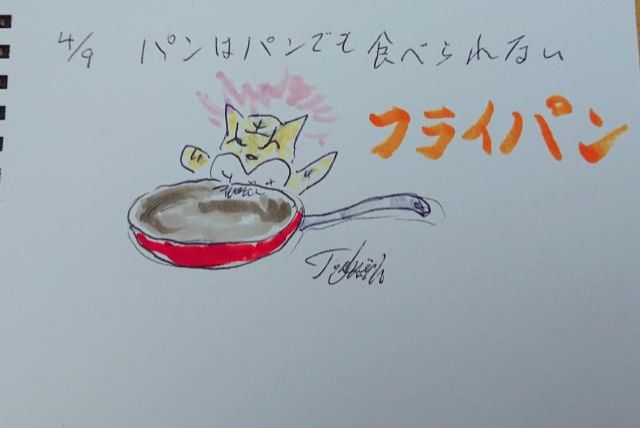 4/9 パンはパンでも食べられない
フライパン